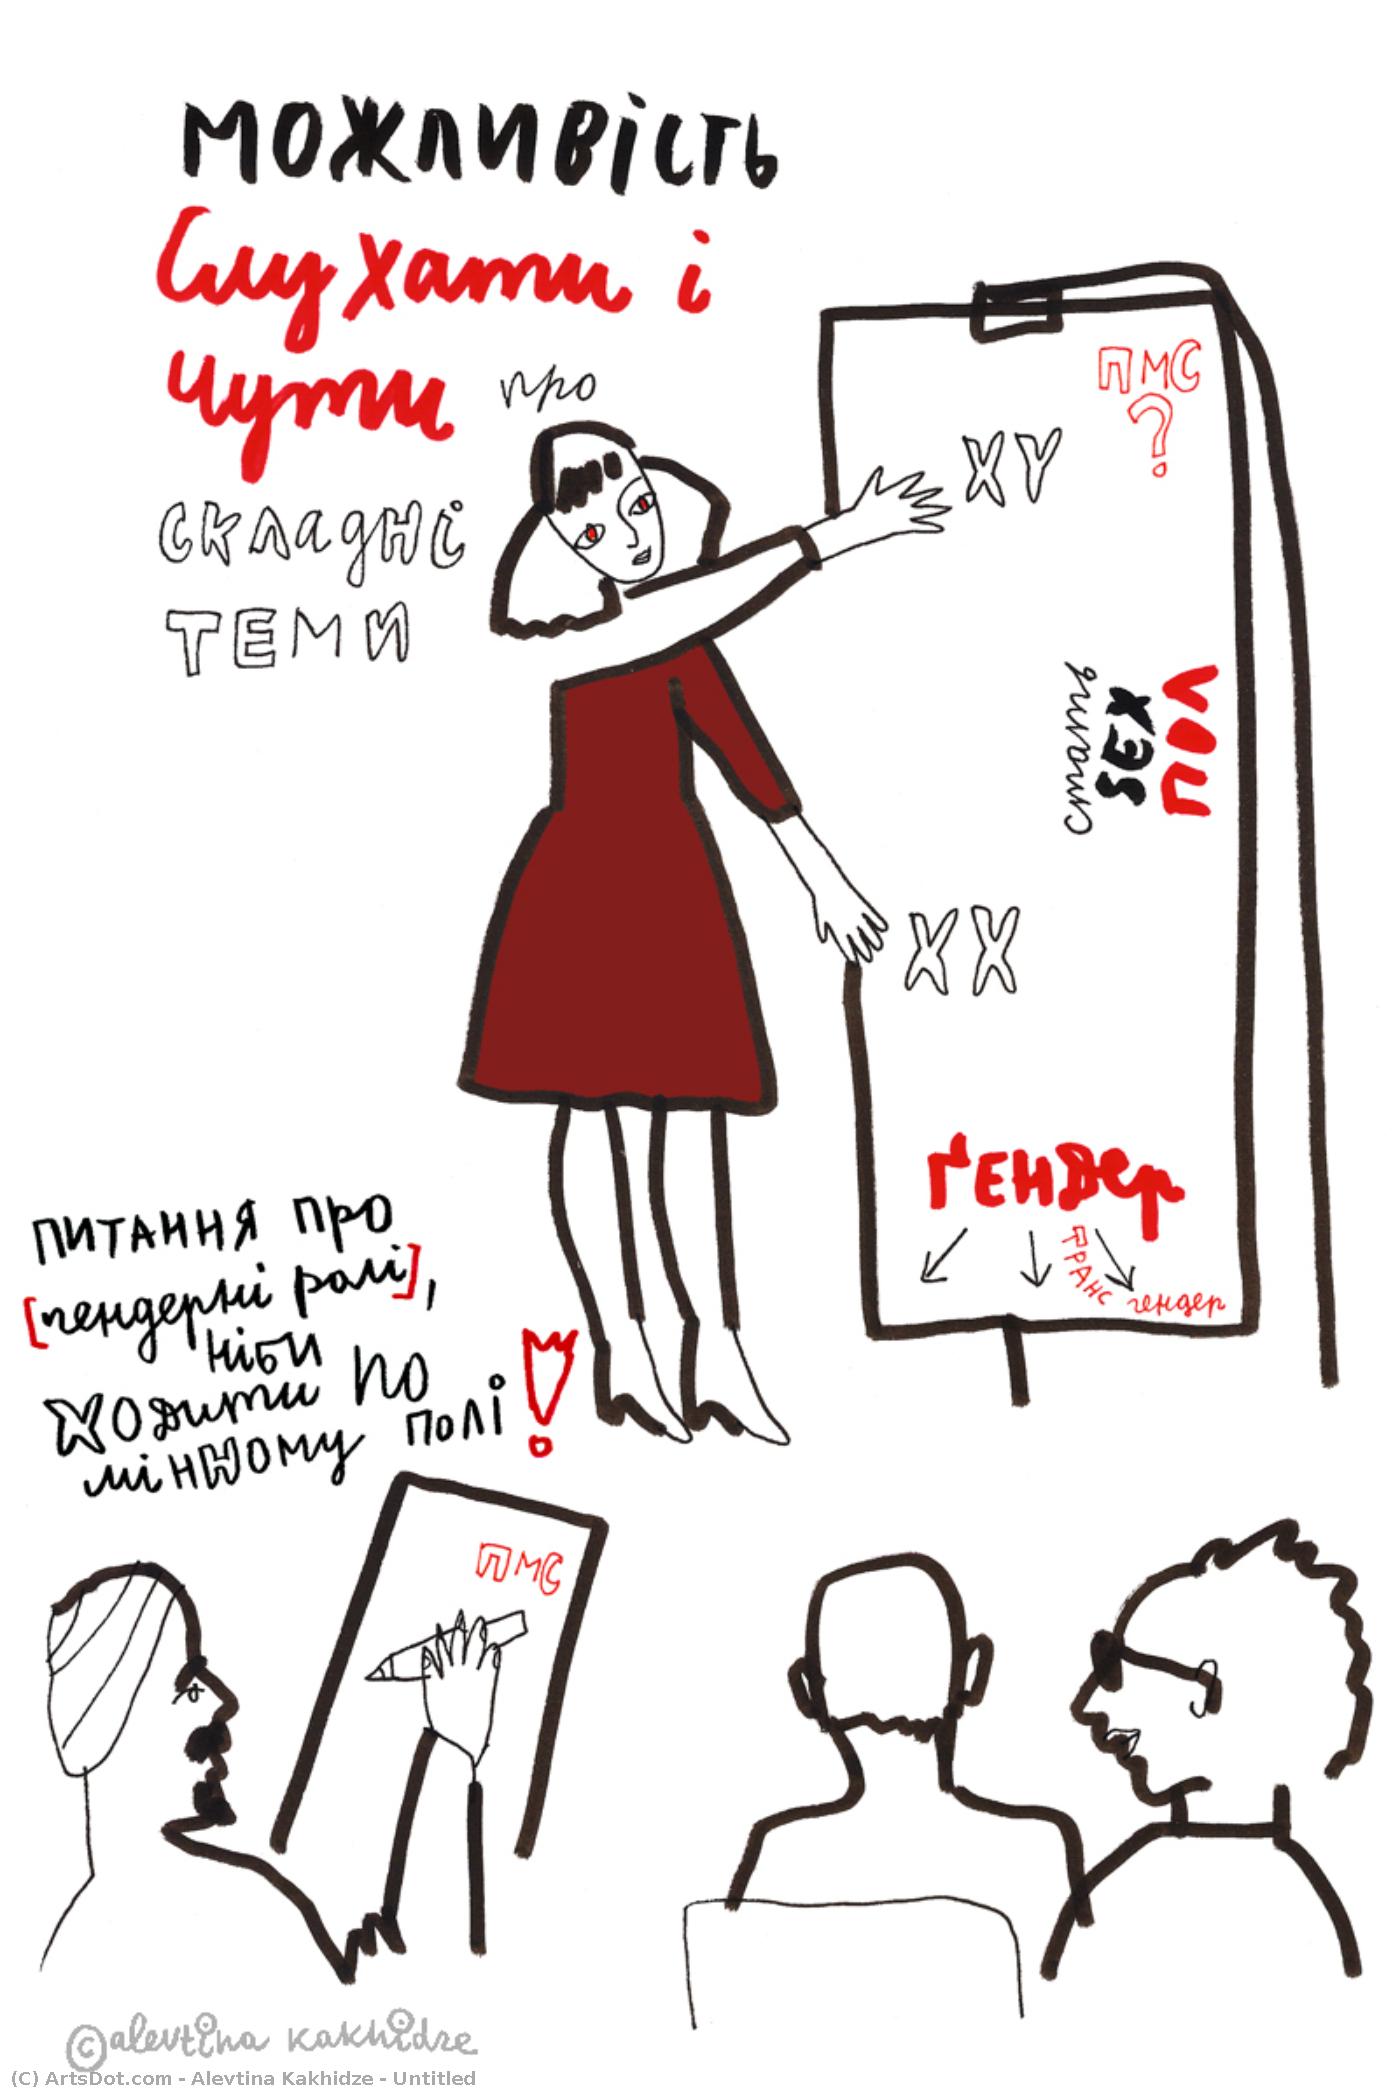 МОЖЛИВІСТЬ
Слухати і
чути про
СКЛАДНІ
ТЕМИ
ПМС
?
XY
стать
SEX
ПОЛ
XX
ҐЕНДЕР
ТРАНС
гендер
ПИТАННЯ ПРО
[гендерні ролі],
НІБИ
ХОДИТИ ПО
МІННОМУ ПОЛІ!
ПМС
©alevtina kakhidze
(C) ArtsDot.com - Alevtina Kakhidze - Untitled